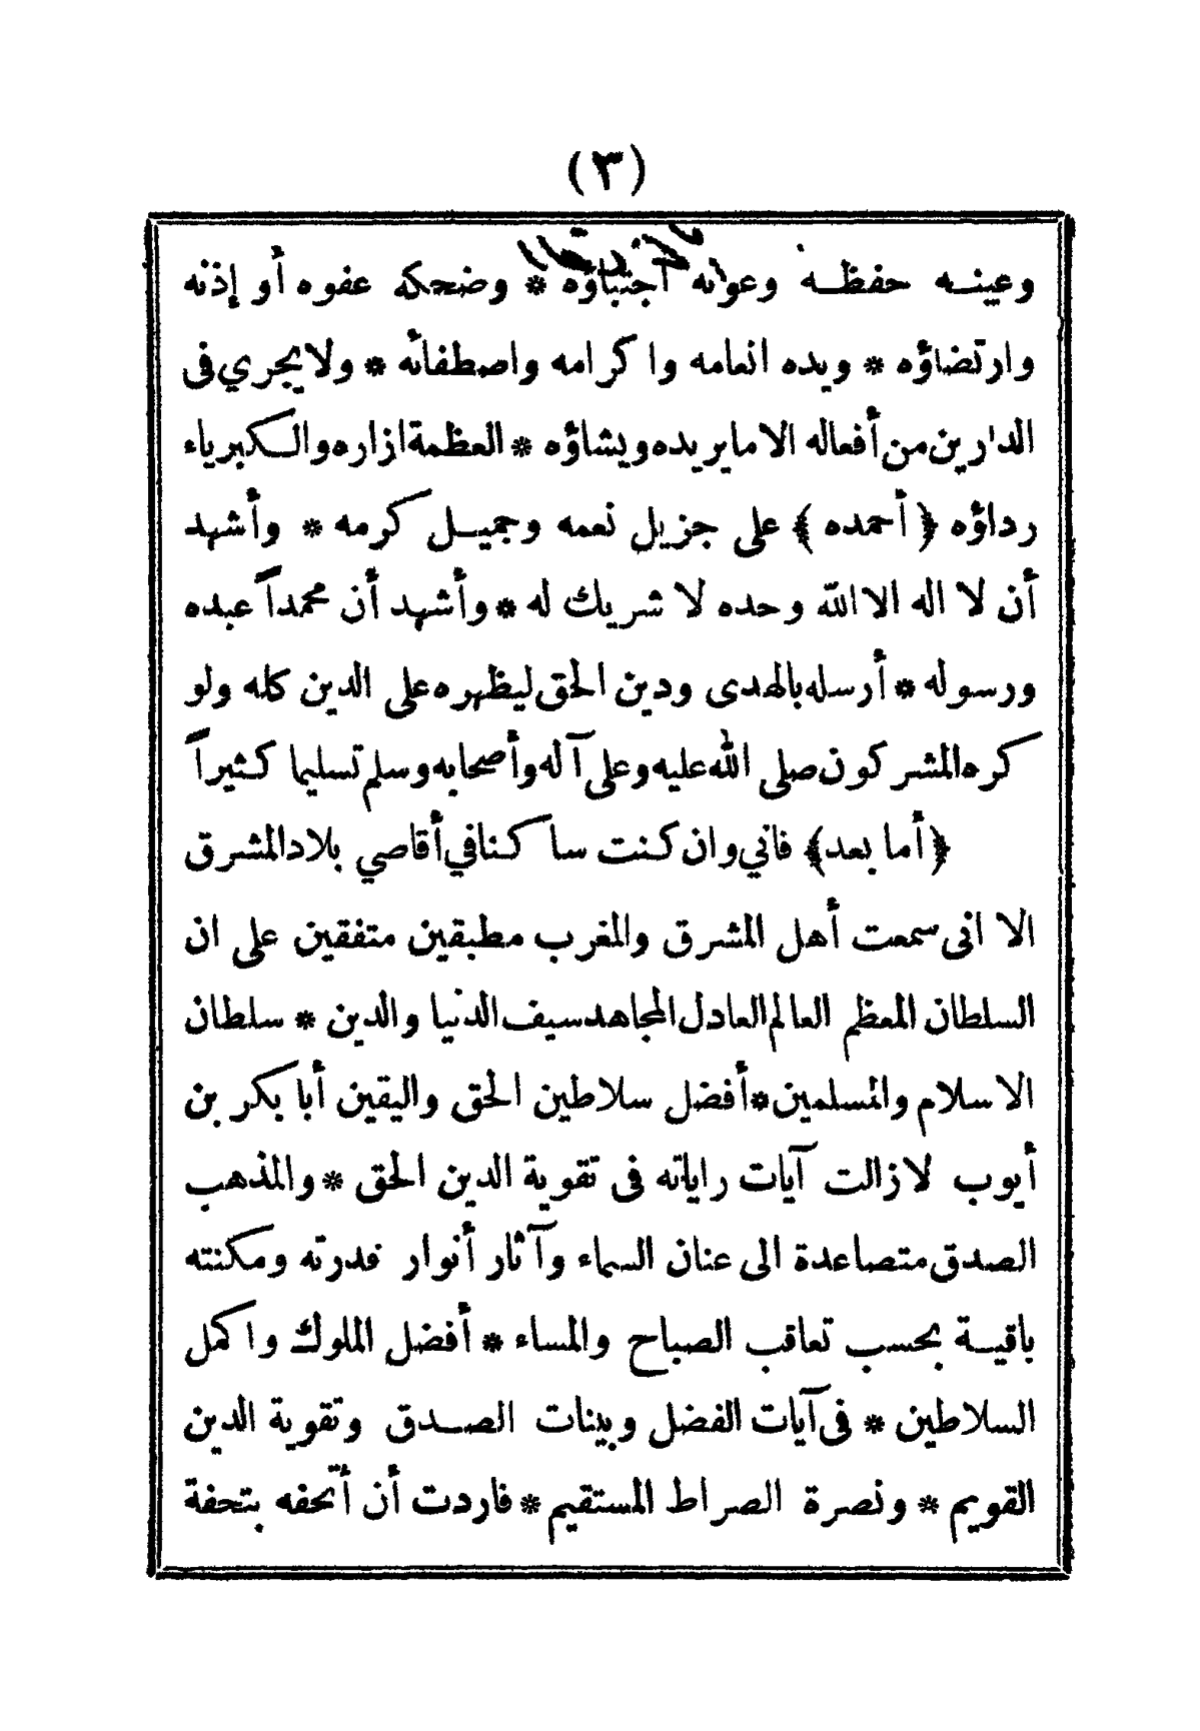 (٣)
وعينه حفظه وعونه اجتباؤه * وضحكه عفوه أو إذنه
وارتضاؤه * ويده انعامه واكرامه واصطفائه * ولايجري فى
الدارين من أفعاله الا مايريده ويشاؤه * العظمة ازاره والكبرياء
رداؤه ﴿ أحمده ﴾ على جزيل نعمه وجميل كرمه * وأشهد
أن لا اله الا الله وحده لا شريك له * وأشهد أن محمداً عبده
ورسوله * أرسله بالهدى ودين الحق ليظهره على الدين كله ولو
كره المشركون صلى الله عليه وعلى آله وأصحابه وسلم تسليما كثيراً
﴿ أما بعد ﴾ فاني وان كنت ساكنا في أقاصي بلاد المشرق
الا انى سمعت أهل المشرق والمغرب مطبقين متفقين على ان
السلطان المعظم العالم العادل المجاهد سيف الدنيا والدين * سلطان
الاسلام والمسلمين * أفضل سلاطين الحق واليقين أبا بكر بن
أيوب لازالت آيات راياته فى تقوية الدين الحق * والمذهب
الصدق متصاعدة الى عنان السماء وآثار أنوار قدرته ومكنته
باقية بحسب تعاقب الصباح والمساء * أفضل الملوك واكمل
السلاطين * فى آيات الفضل وبينات الصدق وتقوية الدين
القويم * ونصرة الصراط المستقيم * فاردت أن أتحفه بتحفة